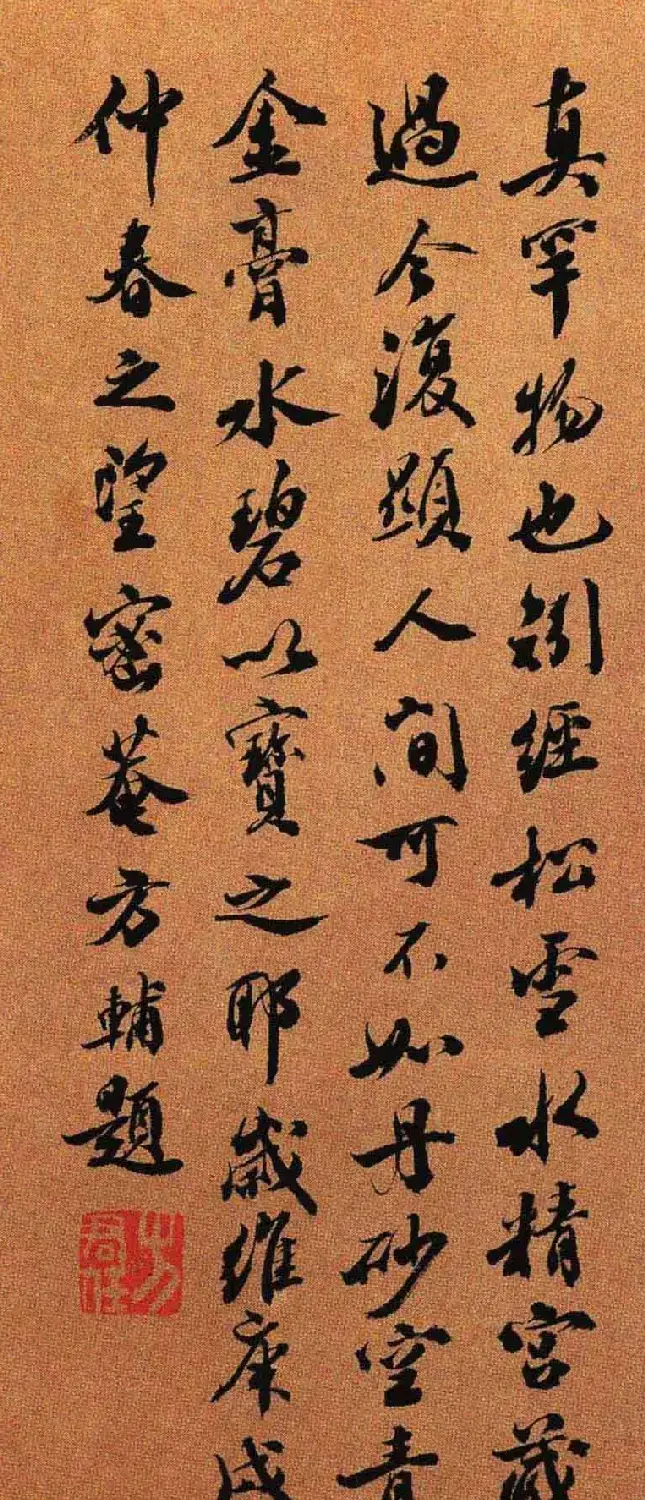 真罕物也劉經松雪水精宮藏
過今復顯人間可不如丹砂空青
金膏水碧以寶之耶歲維庚戌
仲春之望密菴方輔題